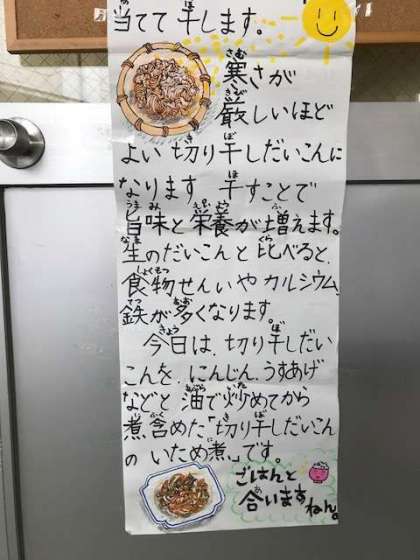 当てて干します。
寒さが
厳しいほど
よい切り干しだいこんに
なります 干すことで
旨味と栄養が増えます。
生のだいこんと比べると、
食物せんいやカルシウム、
鉄が多くなります。
今日は、切り干しだい
こんを、にんじん、うすあげ
などと油で炒めてから
煮含めた「切り干しだいこん
のいため煮」です。
ごはんと
合います
ねん。